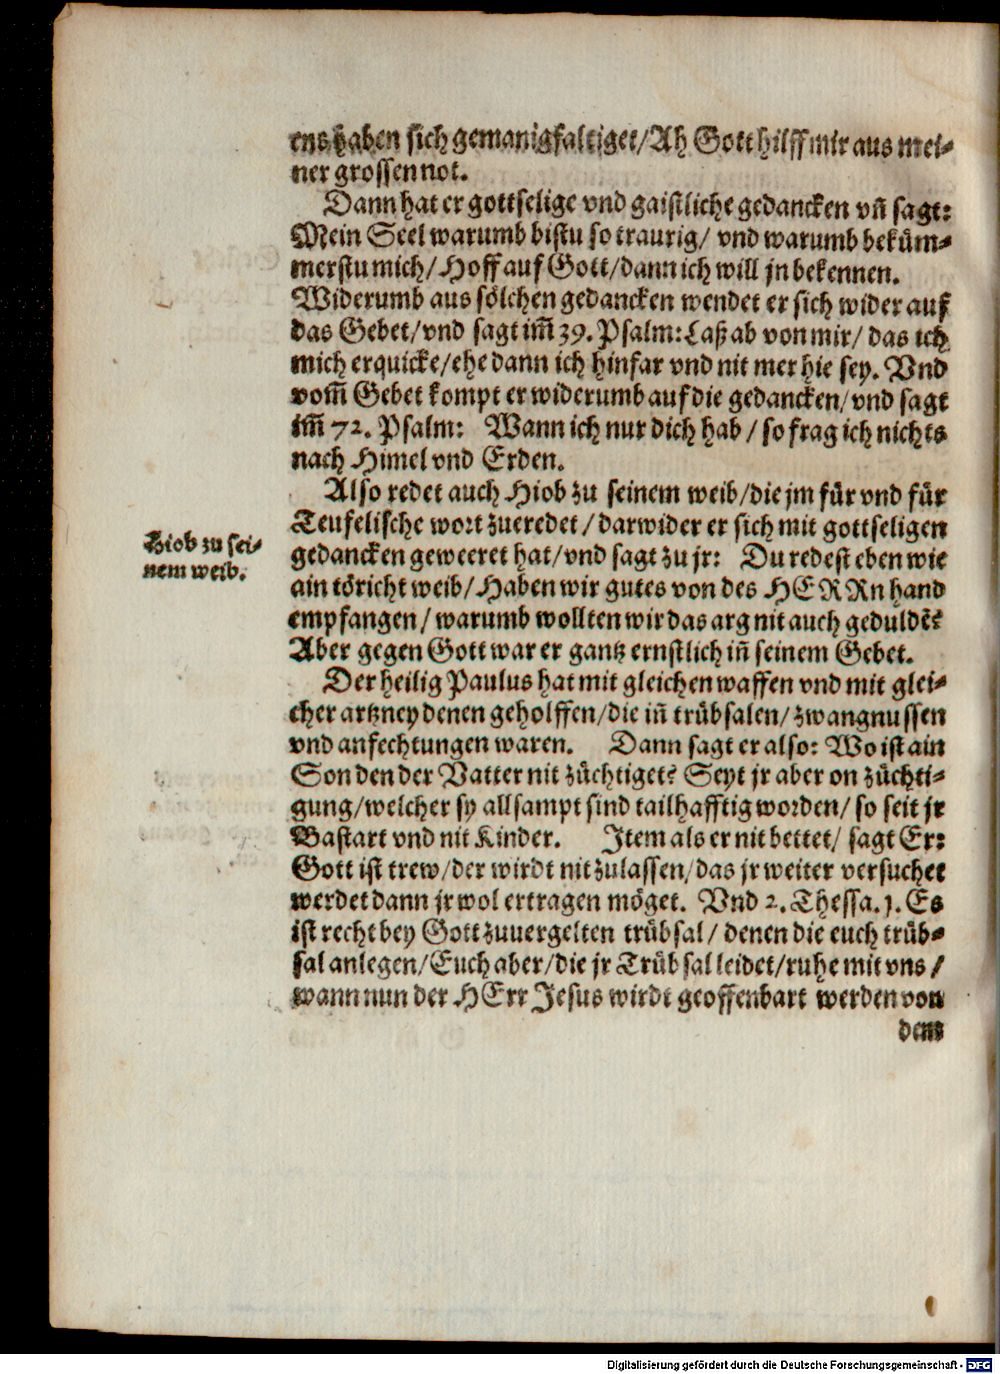 ens haben sich gemanigfaltiget/Ah Gott hilff mir aus mei-
ner grossen not.
Dann hat er gottselige vnd gaistliche gedancken vñ sagt:
Mein Seel warumb bistu so traurig/ vnd warumb beküm-
merstu mich/Hoff auf Gott/dann ich will jn bekennen.
Widerumb aus sölchen gedancken wendet er sich wider auf
das Gebet/vnd sagt im̃ 39. Psalm: Laß ab von mir/ das ich
mich erquicke/ehe dann ich hinfar vnd nit mer hie sey. Vnd
vom̃ Gebet kompt er widerumb auf die gedancken/vnd sagt
im̃ 72. Psalm: Wann ich nur dich hab/ so frag ich nichts
nach Himel vnd Erden.
Also redet auch Hiob zu seinem weib/die jm für vnd für
Teufelische wort zueredet/darwider er sich mit gottseligen
Hiob zu sei-
nem weib.
gedancken geweeret hat/vnd sagt zu jr: Du redest eben wie
ain töricht weib/Haben wir gutes von des HERRn hand
empfangen/warumb wollten wir das arg nit auch geduldẽ?
Aber gegen Gott war er gantz ernstlich iñ seinem Gebet.
Der heilig Paulus hat mit gleichen waffen vnd mit glei-
cher artzney denen geholffen/die iñ trübsalen/zwangnussen
vnd anfechtungen waren. Dann sagt er also: Wo ist ain
Son den der Vatter nit züchtiget? Seyt jr aber on züchti-
gung/welcher sy allsampt sind tailhafftig worden/ so seit jr
Bastart vnd nit Kinder. Item als er nit bettet/ sagt Er:
Gott ist trew/der wirdt nit zulassen/das jr weiter versuchet
werdet dann jr wol ertragen möget. Vnd 2. Thessa. 1. Es
ist recht bey Gott zuuergelten trübsal/ denen die euch trüb-
sal anlegen/Euch aber/die jr Trübsal leidet/ruhe mit vns/
wann nun der HErr Jesus wirdt geoffenbart werden von
dem
Digitalisierung gefördert durch die Deutsche Forschungsgemeinschaft - DFG